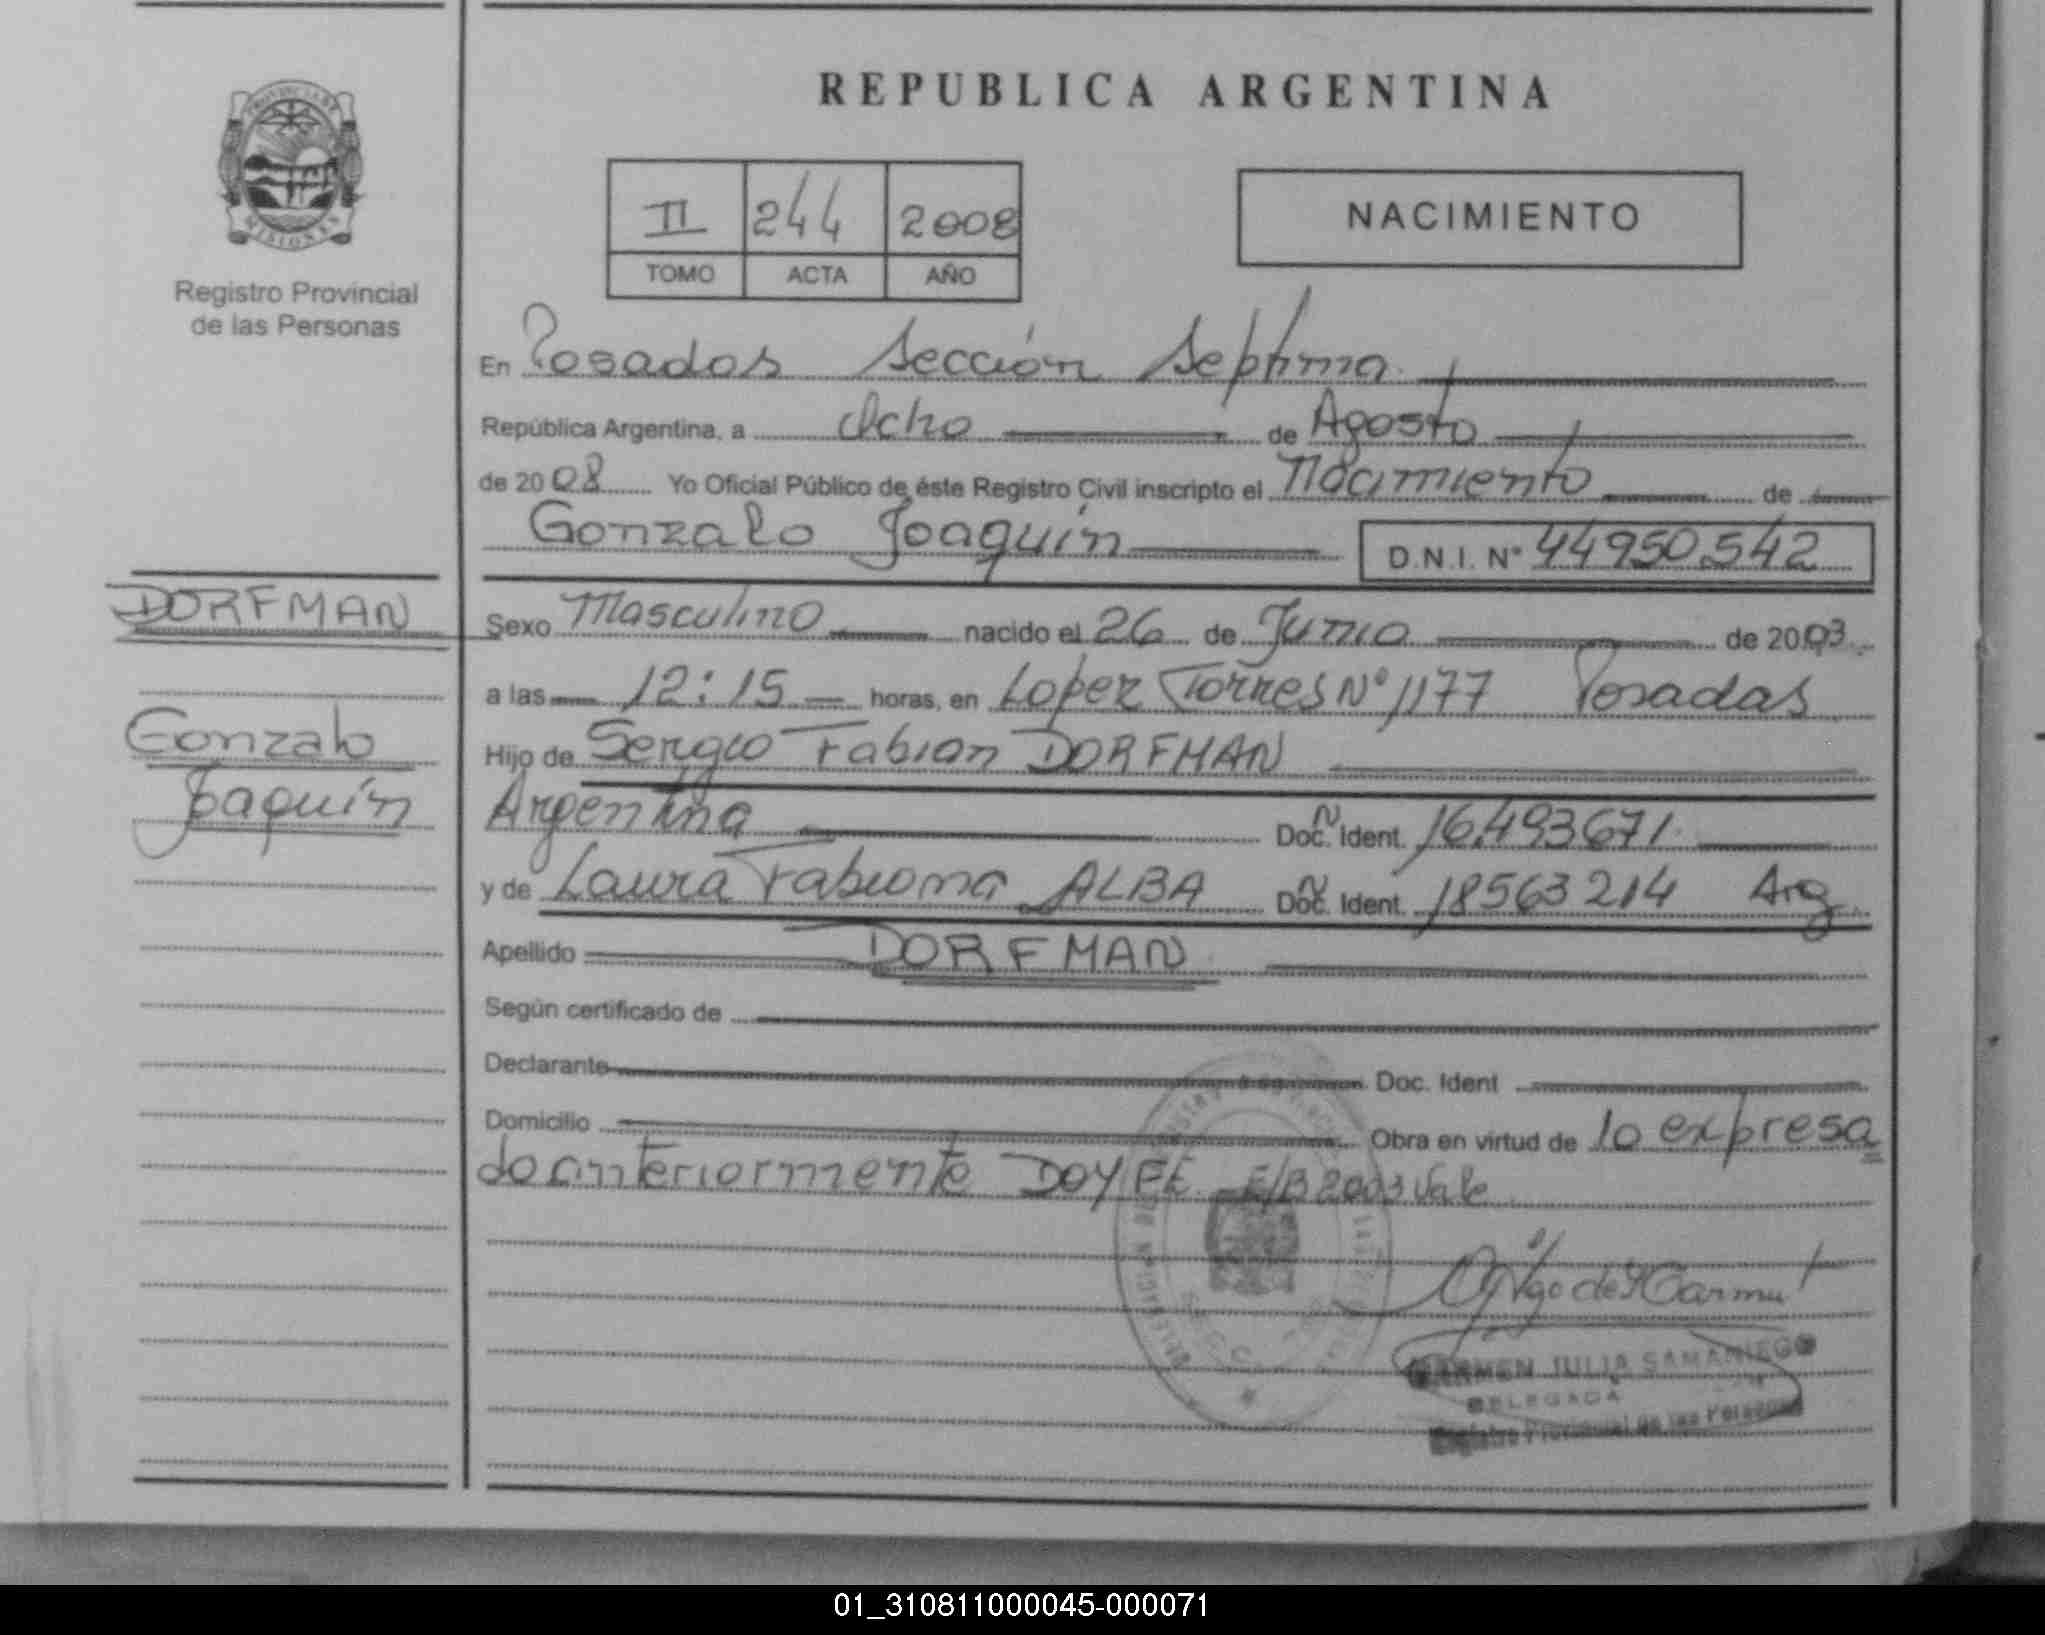 REPUBLICA ARGENTINA
PROVINCIA DE
MISIONES
Registro Provincial
de las Personas
II 244 2008
TOMO ACTA AÑO
NACIMIENTO
En Posadas Sección Septima
República Argentina, a Ocho de Agosto
de 2008 Yo Oficial Público de éste Registro Civil inscripto el Nacimiento de
Gonzalo Joaquín D.N.I. N° 44950.542
DORFMAN
Gonzalo
Joaquín
Sexo Masculino nacido el 26 de Junio de 2003
a las 12:15 horas, en Lopez Torres N° 1177 Posadas
Hijo de Sergio Fabian DORFMAN
Argentina Doc. Ident. 16.493671
y de Laura Fabiana ALBA Doc. Ident. 18563214 Arg
Apellido DORFMAN
Según certificado de
Declarante Doc. Ident
Domicilio Obra en virtud de lo expresa
do anteriormente DOY FE E/B 2003 Vale
CARMEN JULIA SAMANIEGO
DELEGADA
Registro Provincial de las Personas
01_310811000045-000071